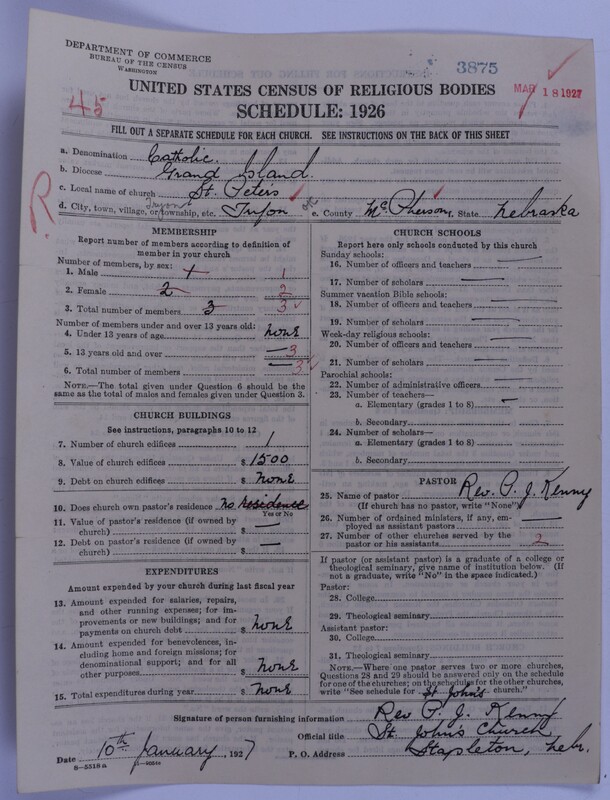 DEPARTMENT OF COMMERCE
BUREAU OF THE CENSUS
WASHINGTON
3875
MAR 18 1927
45
UNITED STATES CENSUS OF RELIGIOUS BODIES
SCHEDULE: 1926
FILL OUT A SEPARATE SCHEDULE FOR EACH CHURCH. SEE INSTRUCTIONS ON THE BACK OF THIS SHEET
a. Denomination Catholic.
b. Diocese Grand Island.
c. Local name of church St. Peter's
R.
d. City, town, village, or township, etc. Tryon Tryon e. County McPherson, State Nebraska
MEMBERSHIP
Report number of members according to definition of member in your church
Number of members, by sex:
1. Male 1 1
2. Female 2 2
3. Total number of members 3 3
Number of members under and over 13 years old:
4. Under 13 years of age none
5. 13 years old and over 3
6. Total number of members 3
NOTE.—The total given under Question 6 should be the same as the total of males and females given under Question 3.
CHURCH BUILDINGS
See instructions, paragraphs 10 to 12
7. Number of church edifices 1
8. Value of church edifices $ 1500
9. Debt on church edifices $ none
10. Does church own pastor's residence no residence
Yes or No
11. Value of pastor's residence (if owned by church) $ —
12. Debt on pastor's residence (if owned by church) $ —
EXPENDITURES
Amount expended by your church during last fiscal year
13. Amount expended for salaries, repairs, and other running expenses; for improvements or new buildings; and for payments on church debt $ none
14. Amount expended for benevolences, including home and foreign missions; for denominational support; and for all other purposes $ none
15. Total expenditures during year $ none
CHURCH SCHOOLS
Report here only schools conducted by this church
Sunday schools:
16. Number of officers and teachers —
17. Number of scholars —
Summer vacation Bible schools:
18. Number of officers and teachers —
19. Number of scholars —
Week-day religious schools:
20. Number of officers and teachers —
21. Number of scholars —
Parochial schools:
22. Number of administrative officers —
23. Number of teachers—
a. Elementary (grades 1 to 8) —
b. Secondary
24. Number of scholars—
a. Elementary (grades 1 to 8)
b. Secondary
PASTOR
25. Name of pastor Rev. P. J. Kenny
(If church has no pastor, write "None")
26. Number of ordained ministers, if any, employed as assistant pastors —
27. Number of other churches served by the pastor or his assistants 2
If pastor (or assistant pastor) is a graduate of a college or theological seminary, give name of institution below. (If not a graduate, write "No" in the space indicated.)
Pastor:
28. College
29. Theological seminary
Assistant pastor:
30. College
31. Theological seminary
NOTE.—Where one pastor serves two or more churches, Questions 28 and 29 should be answered only on the schedule for one of the churches; on the schedules for the other churches, write "See schedule for St John's church."
Signature of person furnishing information Rev P. J. Kenny
Official title St. John's Church
Date 10th January, 1927 P. O. Address Stapleton, Nebr.
8—5518a